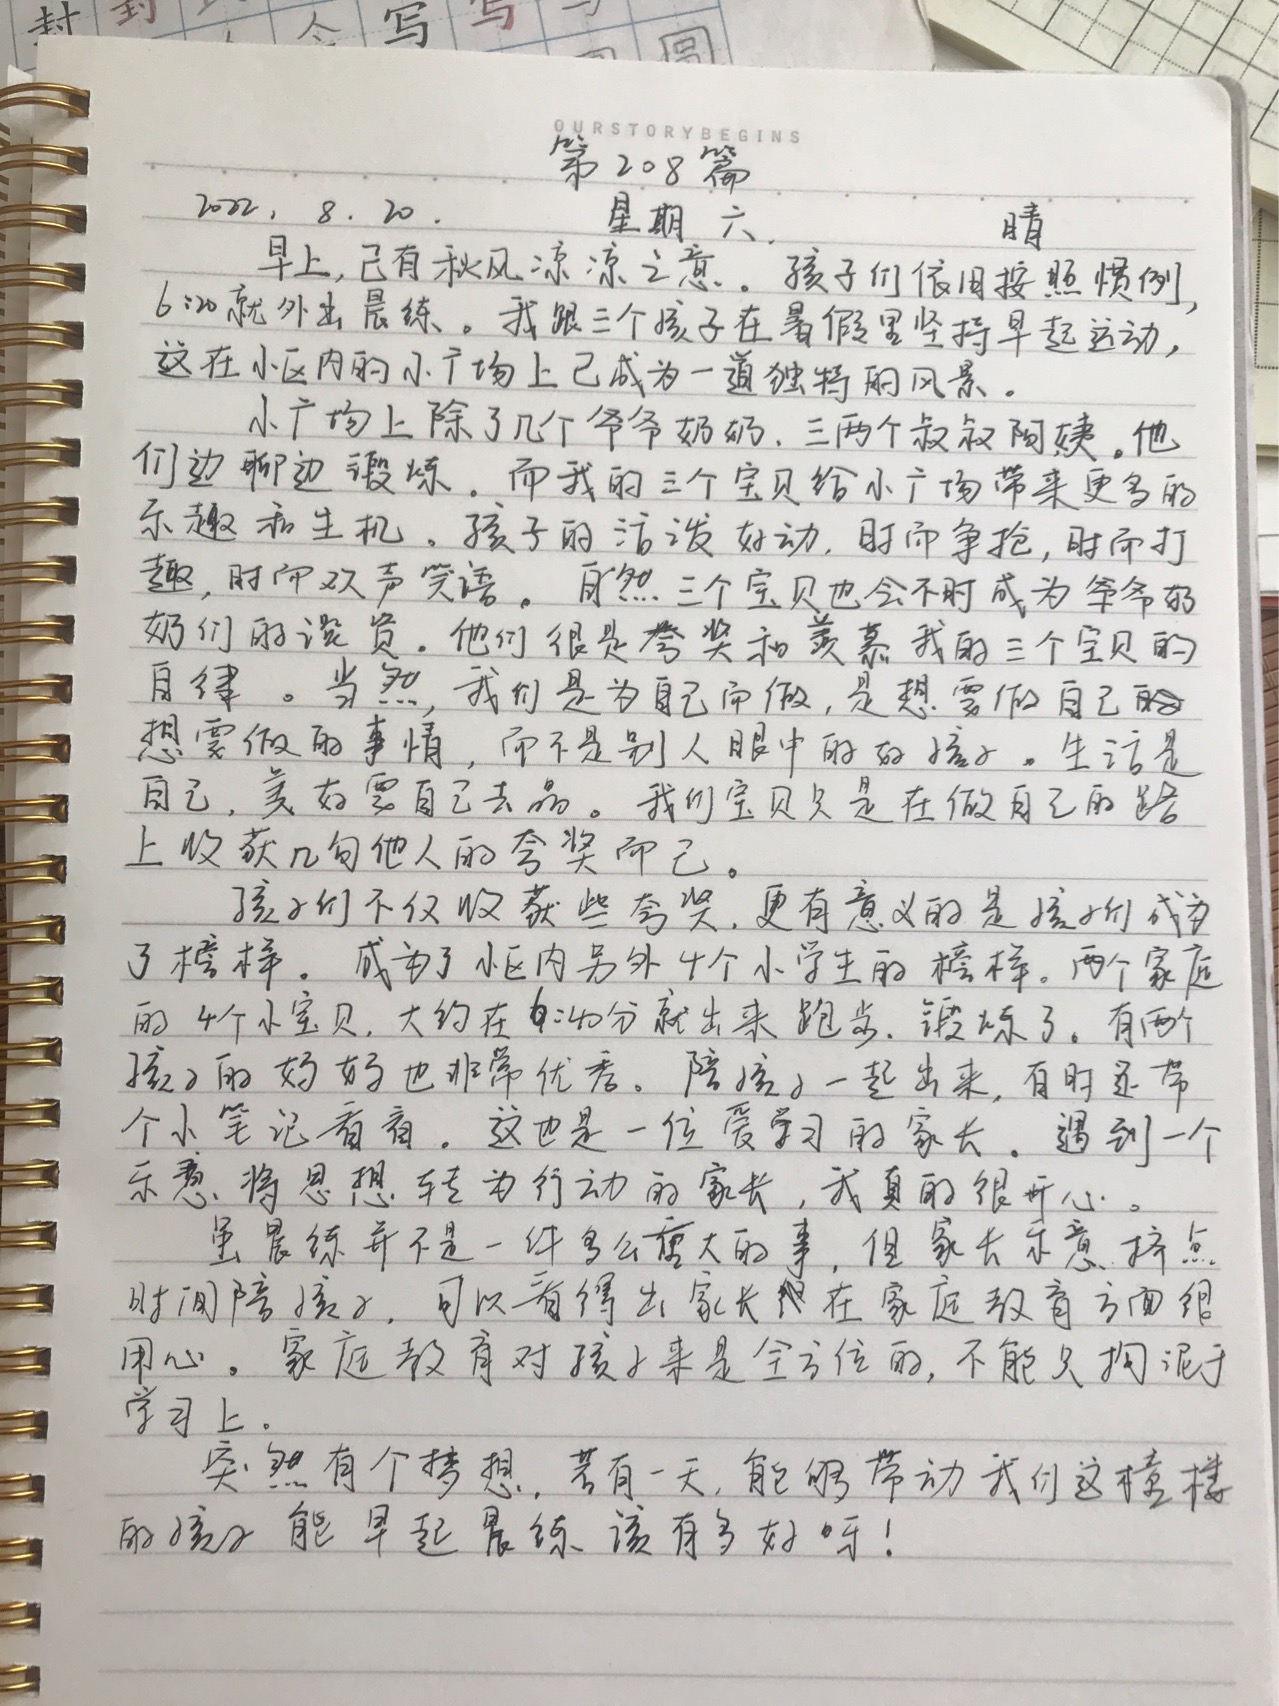 封 封 写 写
圆
OURSTORYBEGINS
第208篇
2022. 8. 20. 星期六. 晴
早上,已有秋风凉凉之意。孩子们依旧按照惯例,
6:20就外出晨练。我跟三个孩子在暑假里坚持早起运动,
这在小区内的小广场上已成为一道独特的风景。
小广场上除了几个爷爷奶奶、三两个叔叔阿姨。他
们边聊边锻炼。而我的三个宝贝给小广场带来更多的
乐趣和生机。孩子的活泼好动,时而争抢,时而打
趣,时而欢声笑语。自然三个宝贝也会不时成为爷爷奶
奶们的谈资。他们很是夸奖和羡慕我的三个宝贝的
自律。当然,我们是为自己而做,是想要做自己
想要做的事情,而不是别人眼中的好孩子。生活是
自己,美好要自己去品。我们宝贝只是在做自己的路
上收获几句他人的夸奖而已。
孩子们不仅收获些夸奖,更有意义的是孩子们成为
了榜样。成为了小区内另外4个小学生的榜样。两个家庭
的4个小宝贝,大约在6:40分就出来跑步、锻炼了。有两个
孩子的妈妈也非常优秀。陪孩子一起出来,有时还带
个小笔记看看。这也是一位爱学习的家长。遇到一个
乐意将思想转为行动的家长,我真的很开心。
虽晨练并不是一件多么重大的事,但家长乐意挤点
时间陪孩子,可以看得出家长在家庭教育方面很
用心。家庭教育对孩子来是全方位的,不能只拘泥于
学习上。
突然有个梦想,若有一天,能够带动我们这幢楼
的孩子能早起晨练该有多好呀!